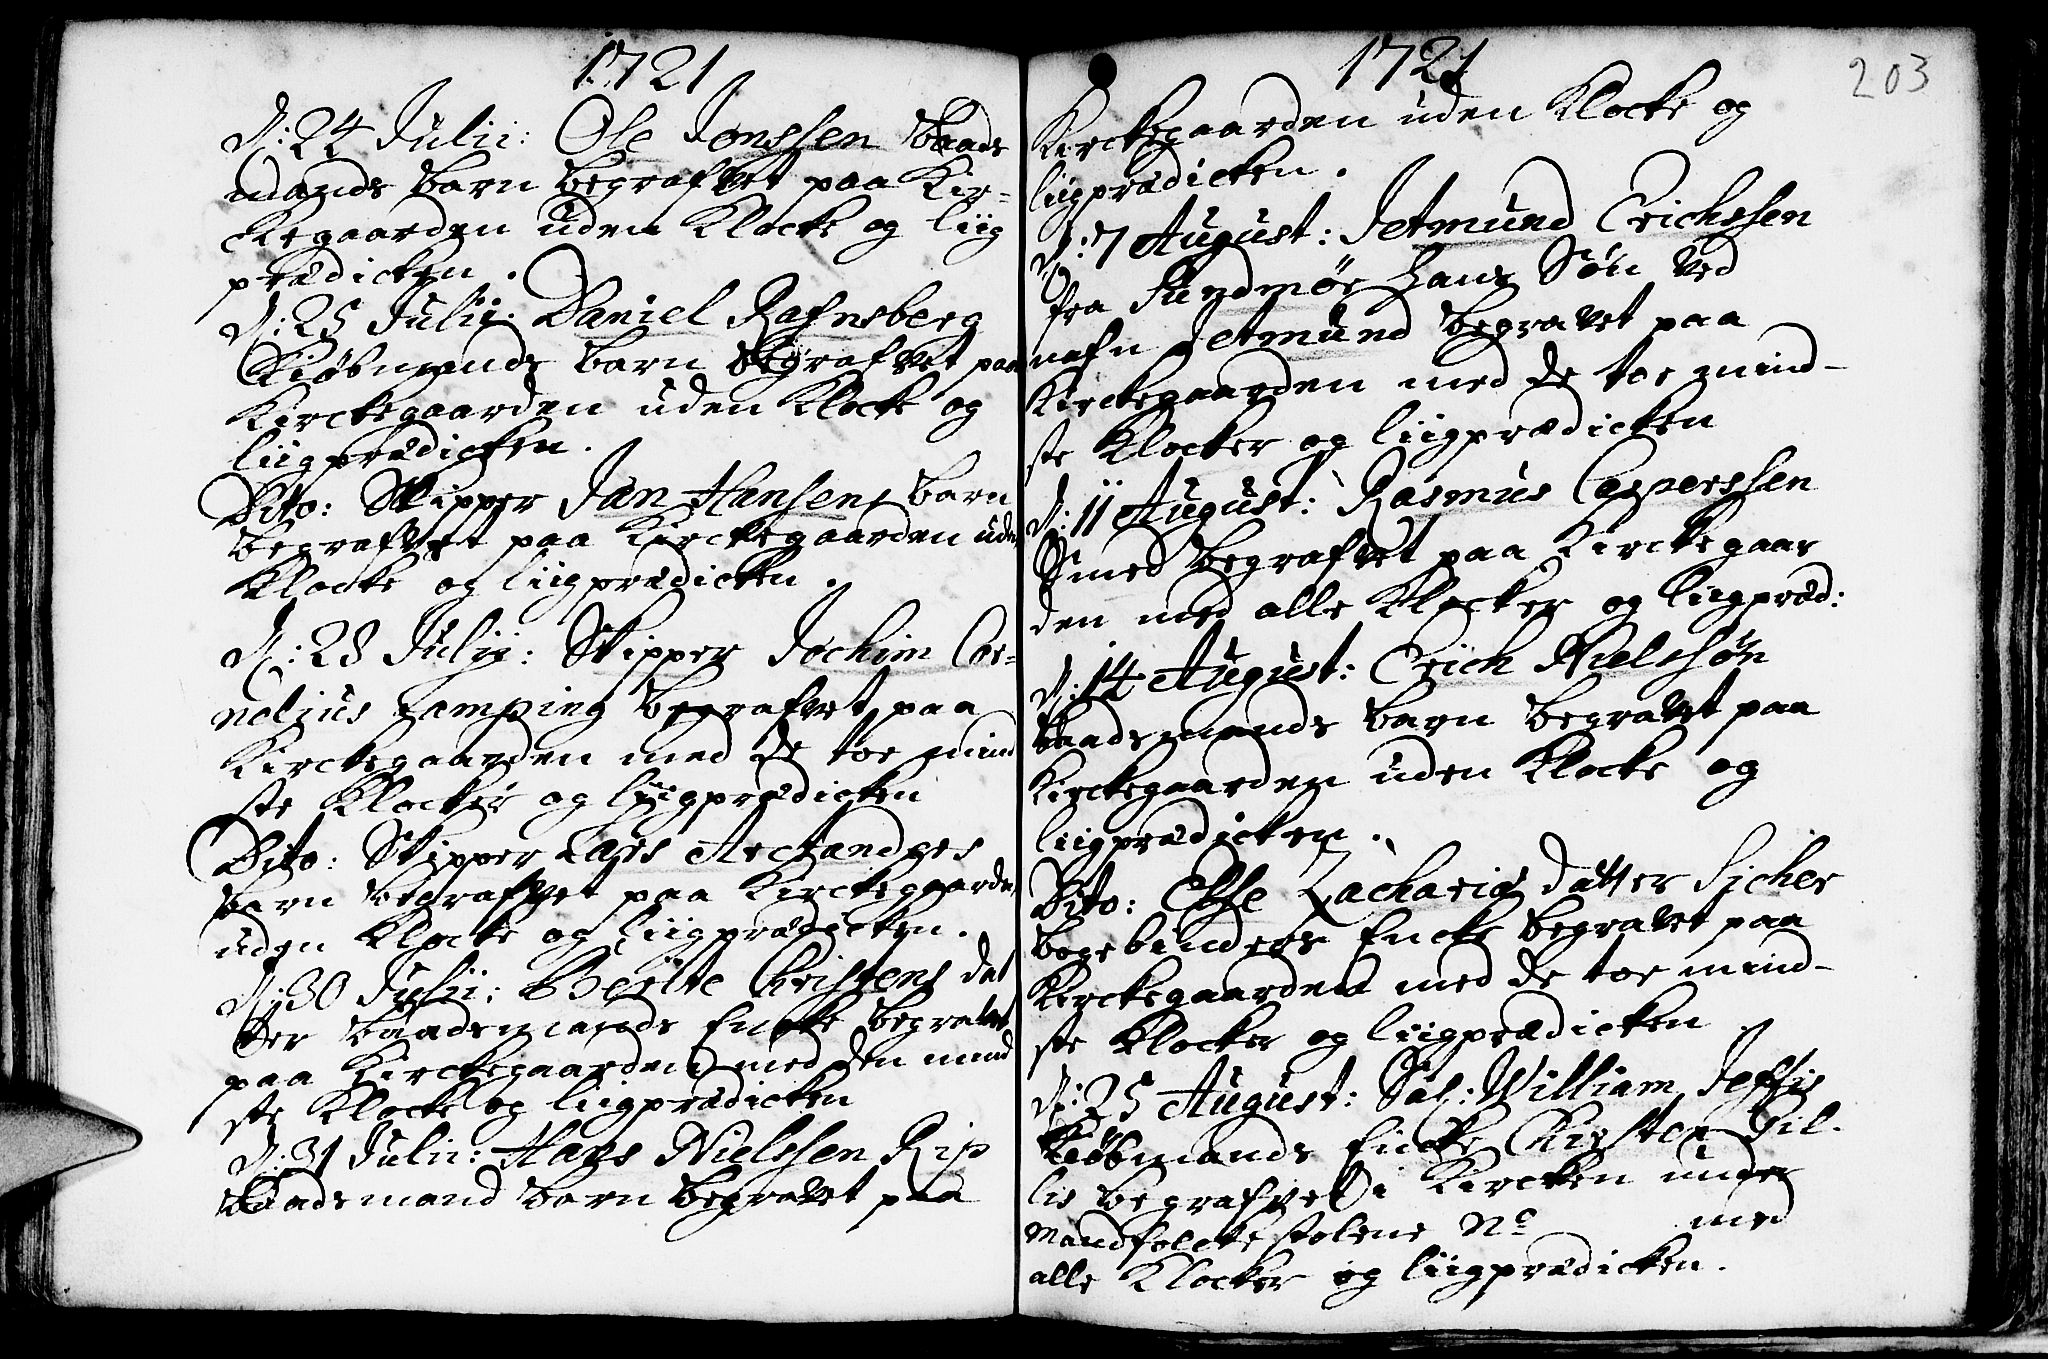 1721
D: 24 Julii: Ole Jonssen Baads
mands barn begrafvet paa Kir=
ckegaarden uden Klocke og liig
prædicken.
D: 25 Julii: Daniel Rafnsberg
Kiøbmands barn begrafvet paa
Kirckegaarden uden Klocke og
liigprædicken.
Dito: Skipper Jan Hansens barn
begrafvet paa Kirckegaarden uden
Klocke og liigprædicken.
D: 28 Julii: Skipper Jochim Cor=
nelius begrafvet paa
Kirckegaarden med de toe mind
ste Klocker og liigprædicken
Dito: Skipper
barn begrafvet paa Kirckegaarden
uden Klocke og liigprædicken.
D: 30 Julii: Berite Christens dat
ter baadsmands Encke begravet
paa Kirckegaarden med den mind
ste Klocke og liigprædicken
D: 31 Julii: Hans Nielssen Rip
Baadsmand barn begravet paa
1721
203
Kirckegaarden uden Klocke og
liigprædicken.
D: 7 August: Jetmund Erichssen
fra Sundmør hans Søn ved
nafn Jetmund begravet paa
Kirckegaarden med de toe mind-
ste Klocker og liigprædicken
D: 11 August: Rasmus Casperssen
Smed begrafvet paa Kirckegaar
den med alle Klocker og liigpræd:
D: 14 August: Erich Nielssøn
baadsmands barn begravet paa
Kirckegaarden uden Klocke og
liigprædicken.
Dito: Else Zacharias datter
bogebinders Encke begravet paa
Kirckegaarden med de toe mind-
ste Klocker og liigprædicken
D: 25 August: Sal: William
Kiøbmands Encke Kirsten Lil-
lie begrafvet i Kircken under
Mandfolckestolene No med
alle Klocker og liigprædicken.